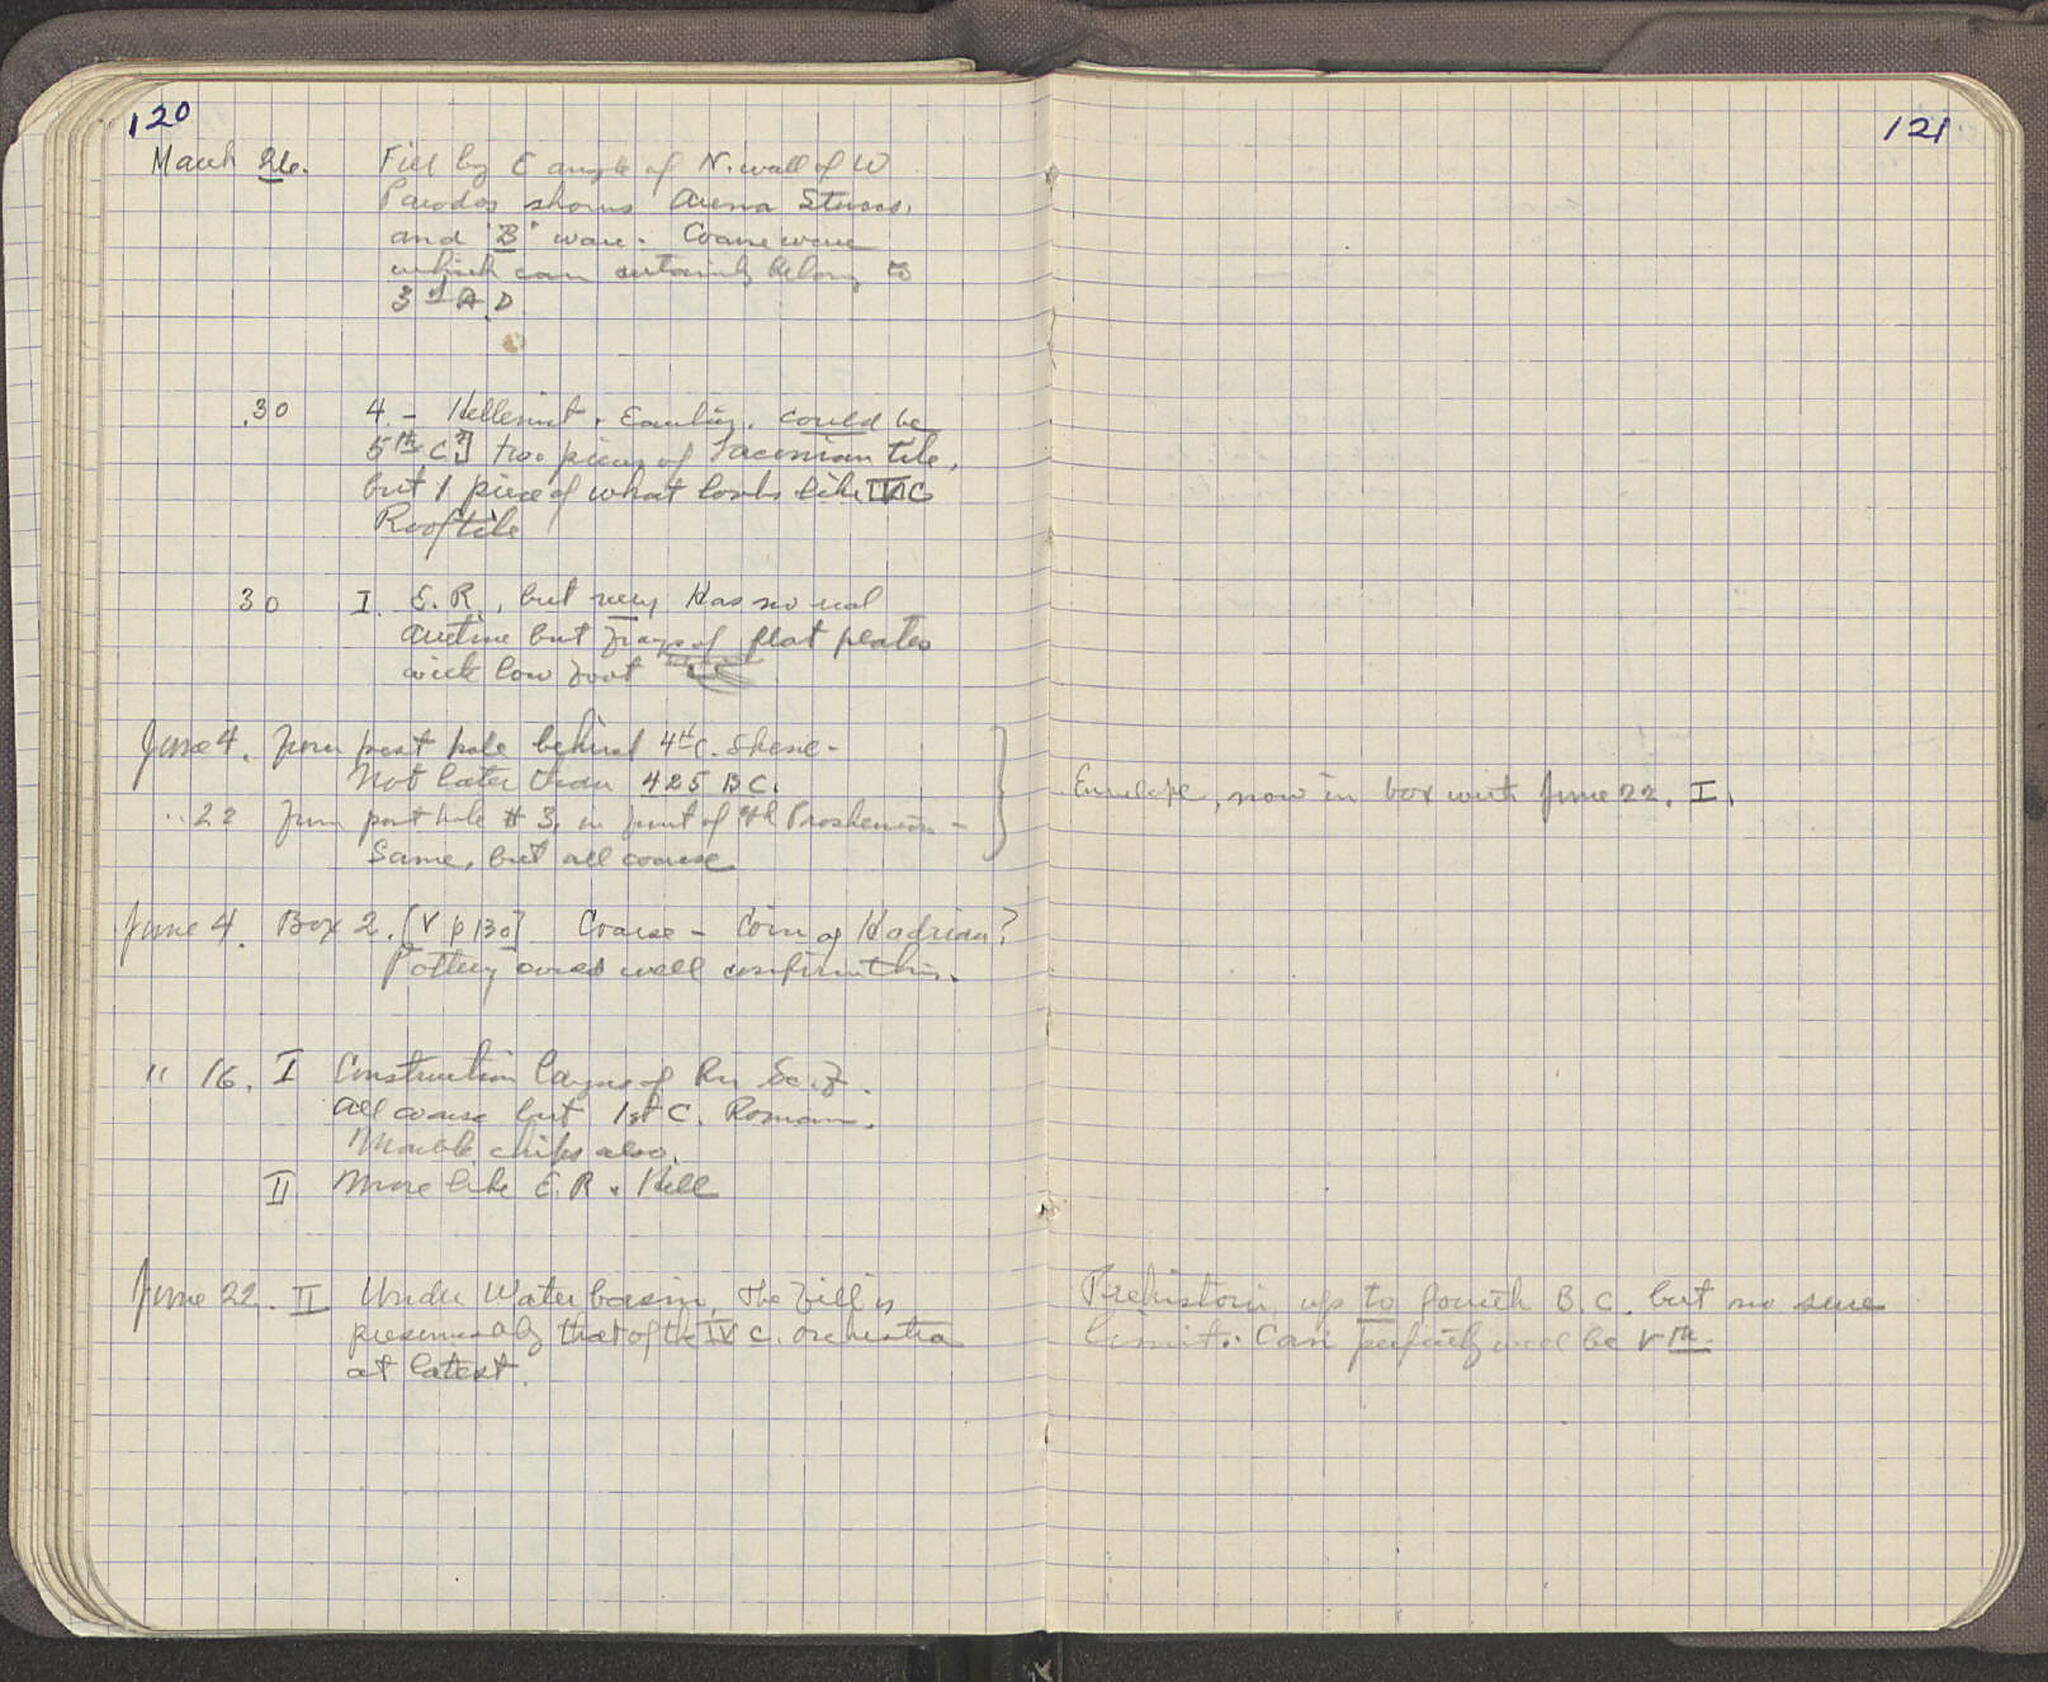 120
March 26. Fill by E angle of N. wall of W
Parodos shows Arena Stucco,
and "B" ware. Coarse ware
which can certainly belong to
3rd A.D.
30 4 - Hellenist. Earlier. could be
5th C?] two pieces of Laconian tile,
but 1 piece of what looks like IV C
Rooftile
30 I. E.R., but very Has no real
Aretine but frags of flat plates
with low foot
June 4. From post hole behind 4th c. Skene -
Not later than 425 BC.
" 22 From post hole # 3. in front of Proskenion -
Same, but all coarse
June 4. Box 2. [V p 130] Coarse - Coin of Hadrian?
Pottery could well confirm this.
" 16. I Construction layer of Rn Sc. F.
All coarse but 1st C. Roman.
Marble chips also.
II More like E.R. & Hell
June 22. II Under Water basin, the fill is
presumably that of the IV c. orchestra
at latest.
121
Envelope, now in box with June 22. I.
Prehistoric up to fourth B.C. but no sure
limit. Can perfectly well be Vth.